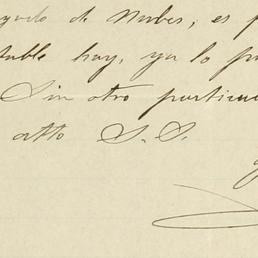 de Nubes, es p
table hay, ya lo pu
Sin otro particu
atto S. S.